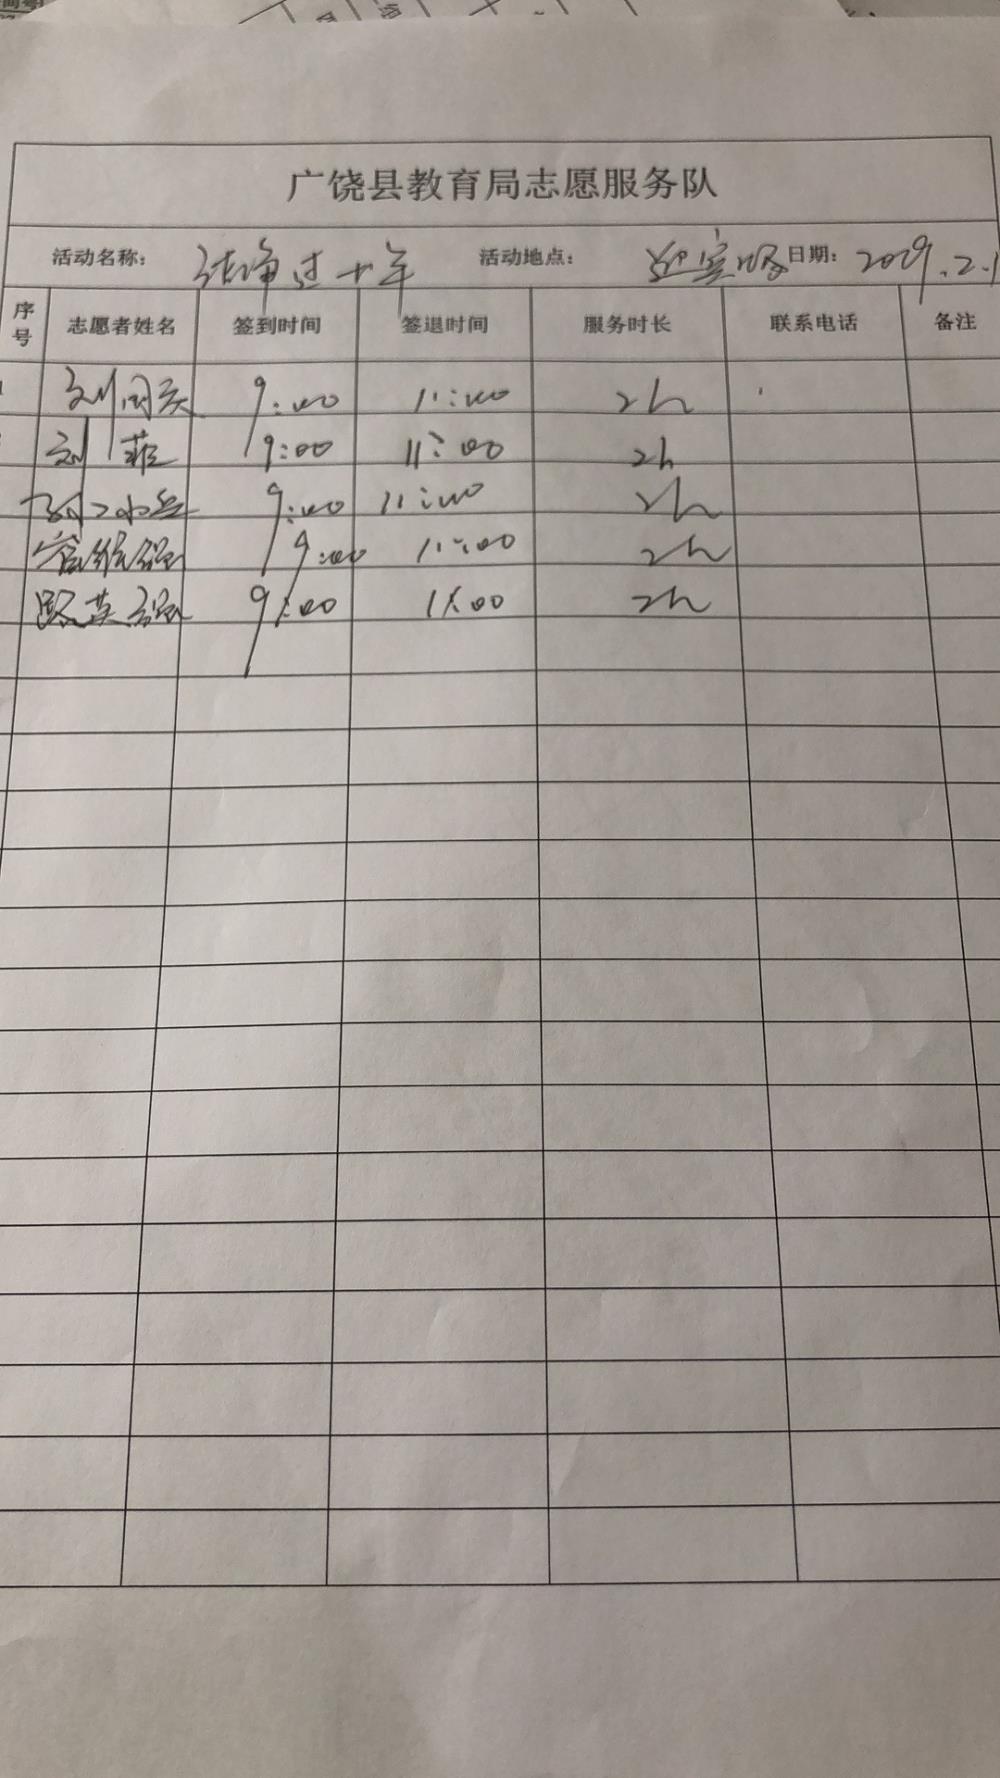 广饶县教育局志愿服务队
活动名称: 洁净过大年 活动地点: 迎宾路 日期: 2019.2.1
序号 志愿者姓名 签到时间 签退时间 服务时长 联系电话 备注
刘国庆 9:00 11:00 2h
刘菲 9:00 11:00 2h
9:00 11:00 2h
9:00 11:00 2h
9:00 11:00 2h